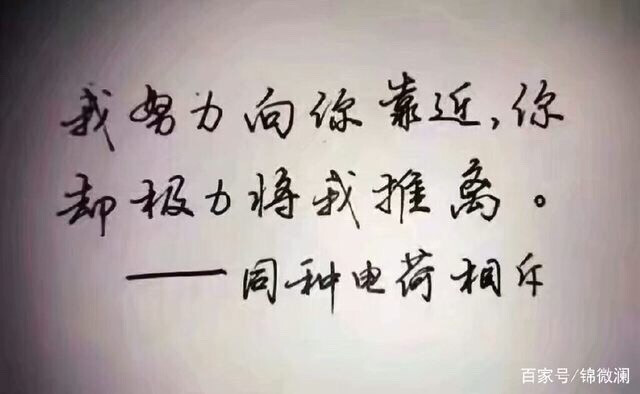 我努力向你靠近,你
却极力将我推离。
——同种电荷相斥
百家号/锦微澜